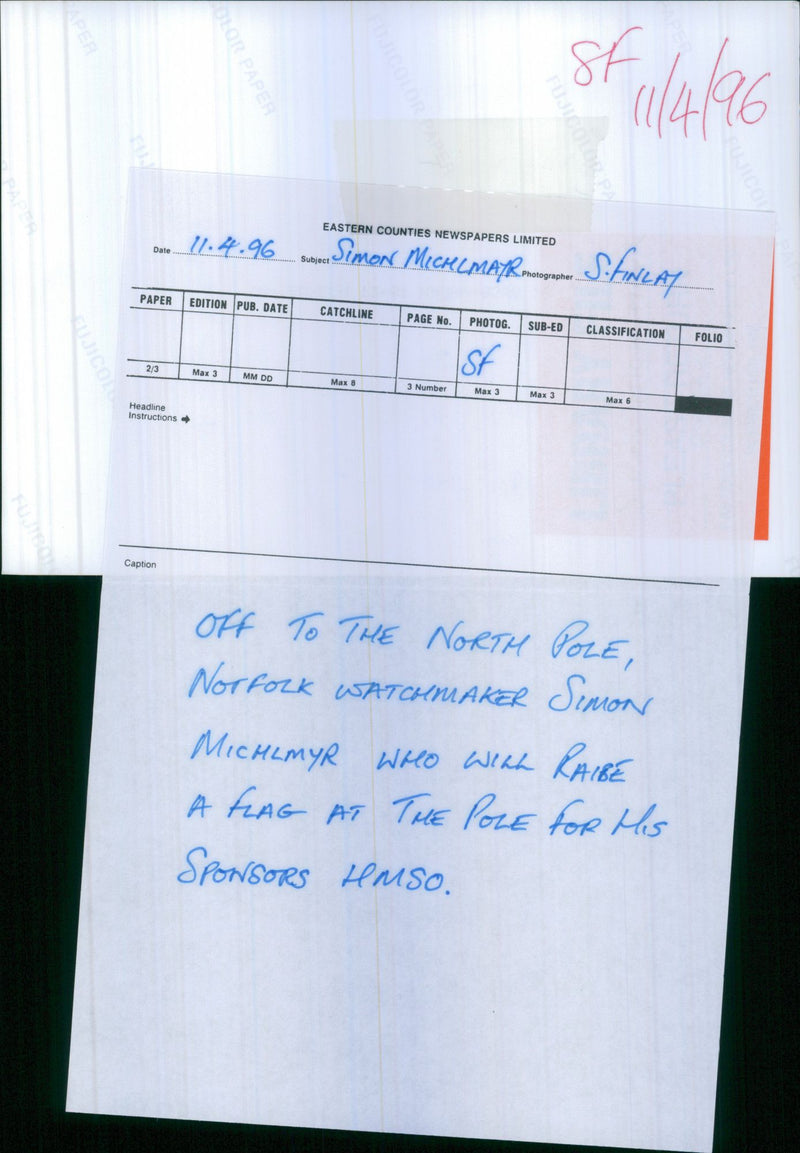 SF
11/4/96
EASTERN COUNTIES NEWSPAPERS LIMITED
Date 11.4.96 Subject SIMON MICHLMAYR Photographer S. FINLAY
PAPER EDITION PUB. DATE CATCHLINE PAGE No. PHOTOG. SUB-ED CLASSIFICATION FOLIO
SF
2/3 Max 3 MM DD Max 8 3 Number Max 3 Max 3 Max 6
Headline
Instructions →
Caption
OFF TO THE NORTH POLE,
NORFOLK WATCHMAKER SIMON
MICHLMYR WHO WILL RAISE
A FLAG AT THE POLE FOR HIS
SPONSORS HMSO.
FUJICOLOR PAPER
FUJICOLOR PAPER
FUJICOLOR PAPER